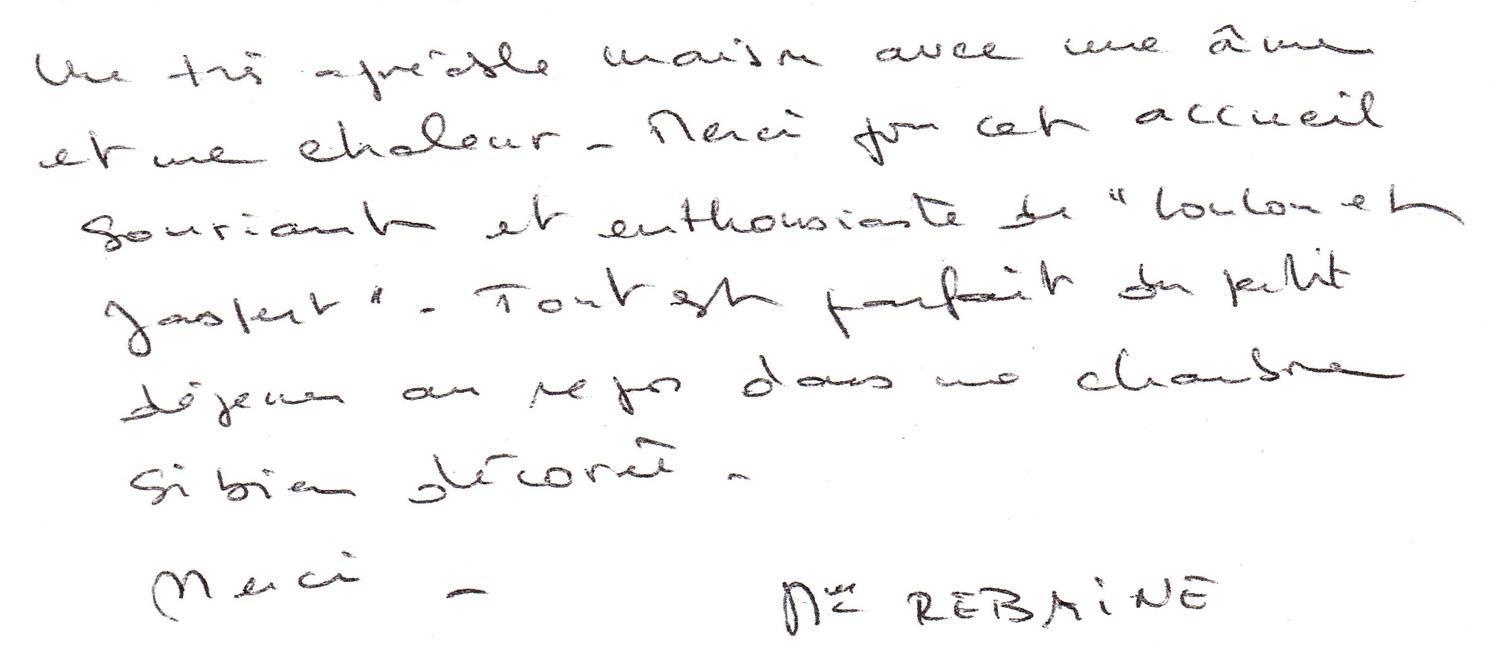 Une très agréable maison avec une âme
et une chaleur - Merci pour cet accueil
souriant et enthousiaste de "Loulou et
Jaspert" - Tout est parfait du petit
déjeuner au repos dans une chambre
si bien décorée -
Merci -
Mme REBAINE